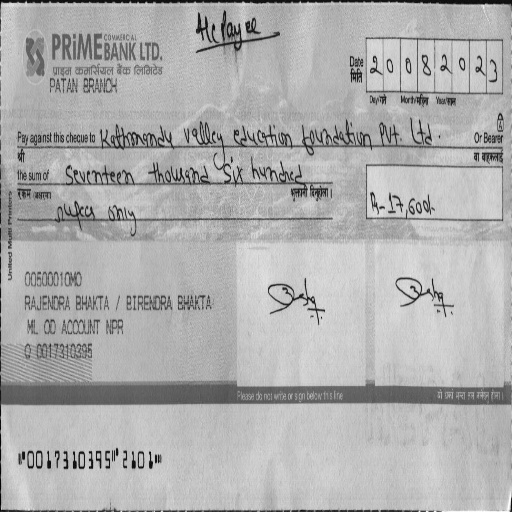 A/c Payee
PRIME COMMERCIAL BANK LTD.
प्राइम कमर्सियल बैंक लिमिटेड
PATAN BRANCH
Date 20082023
मिति
Day/गते Month/महिना Year/साल
Pay against this cheque to Kathmandu valley education foundation Pvt. Ltd. Or Bearer
श्री वा वाहकलाई
the sum of Seventeen thousand six hundred
रकम (अक्षरमा) भुक्तानी दिनुहोला।
rupees only
Rs-17,600/-
United Multi Printers
00500010MO
RAJENDRA BHAKTA / BIRENDRA BHAKTA
ML OD ACCOUNT NPR
Q 0017310395
Please do not write or sign below this line
⑈0017310395⑈2101⑈